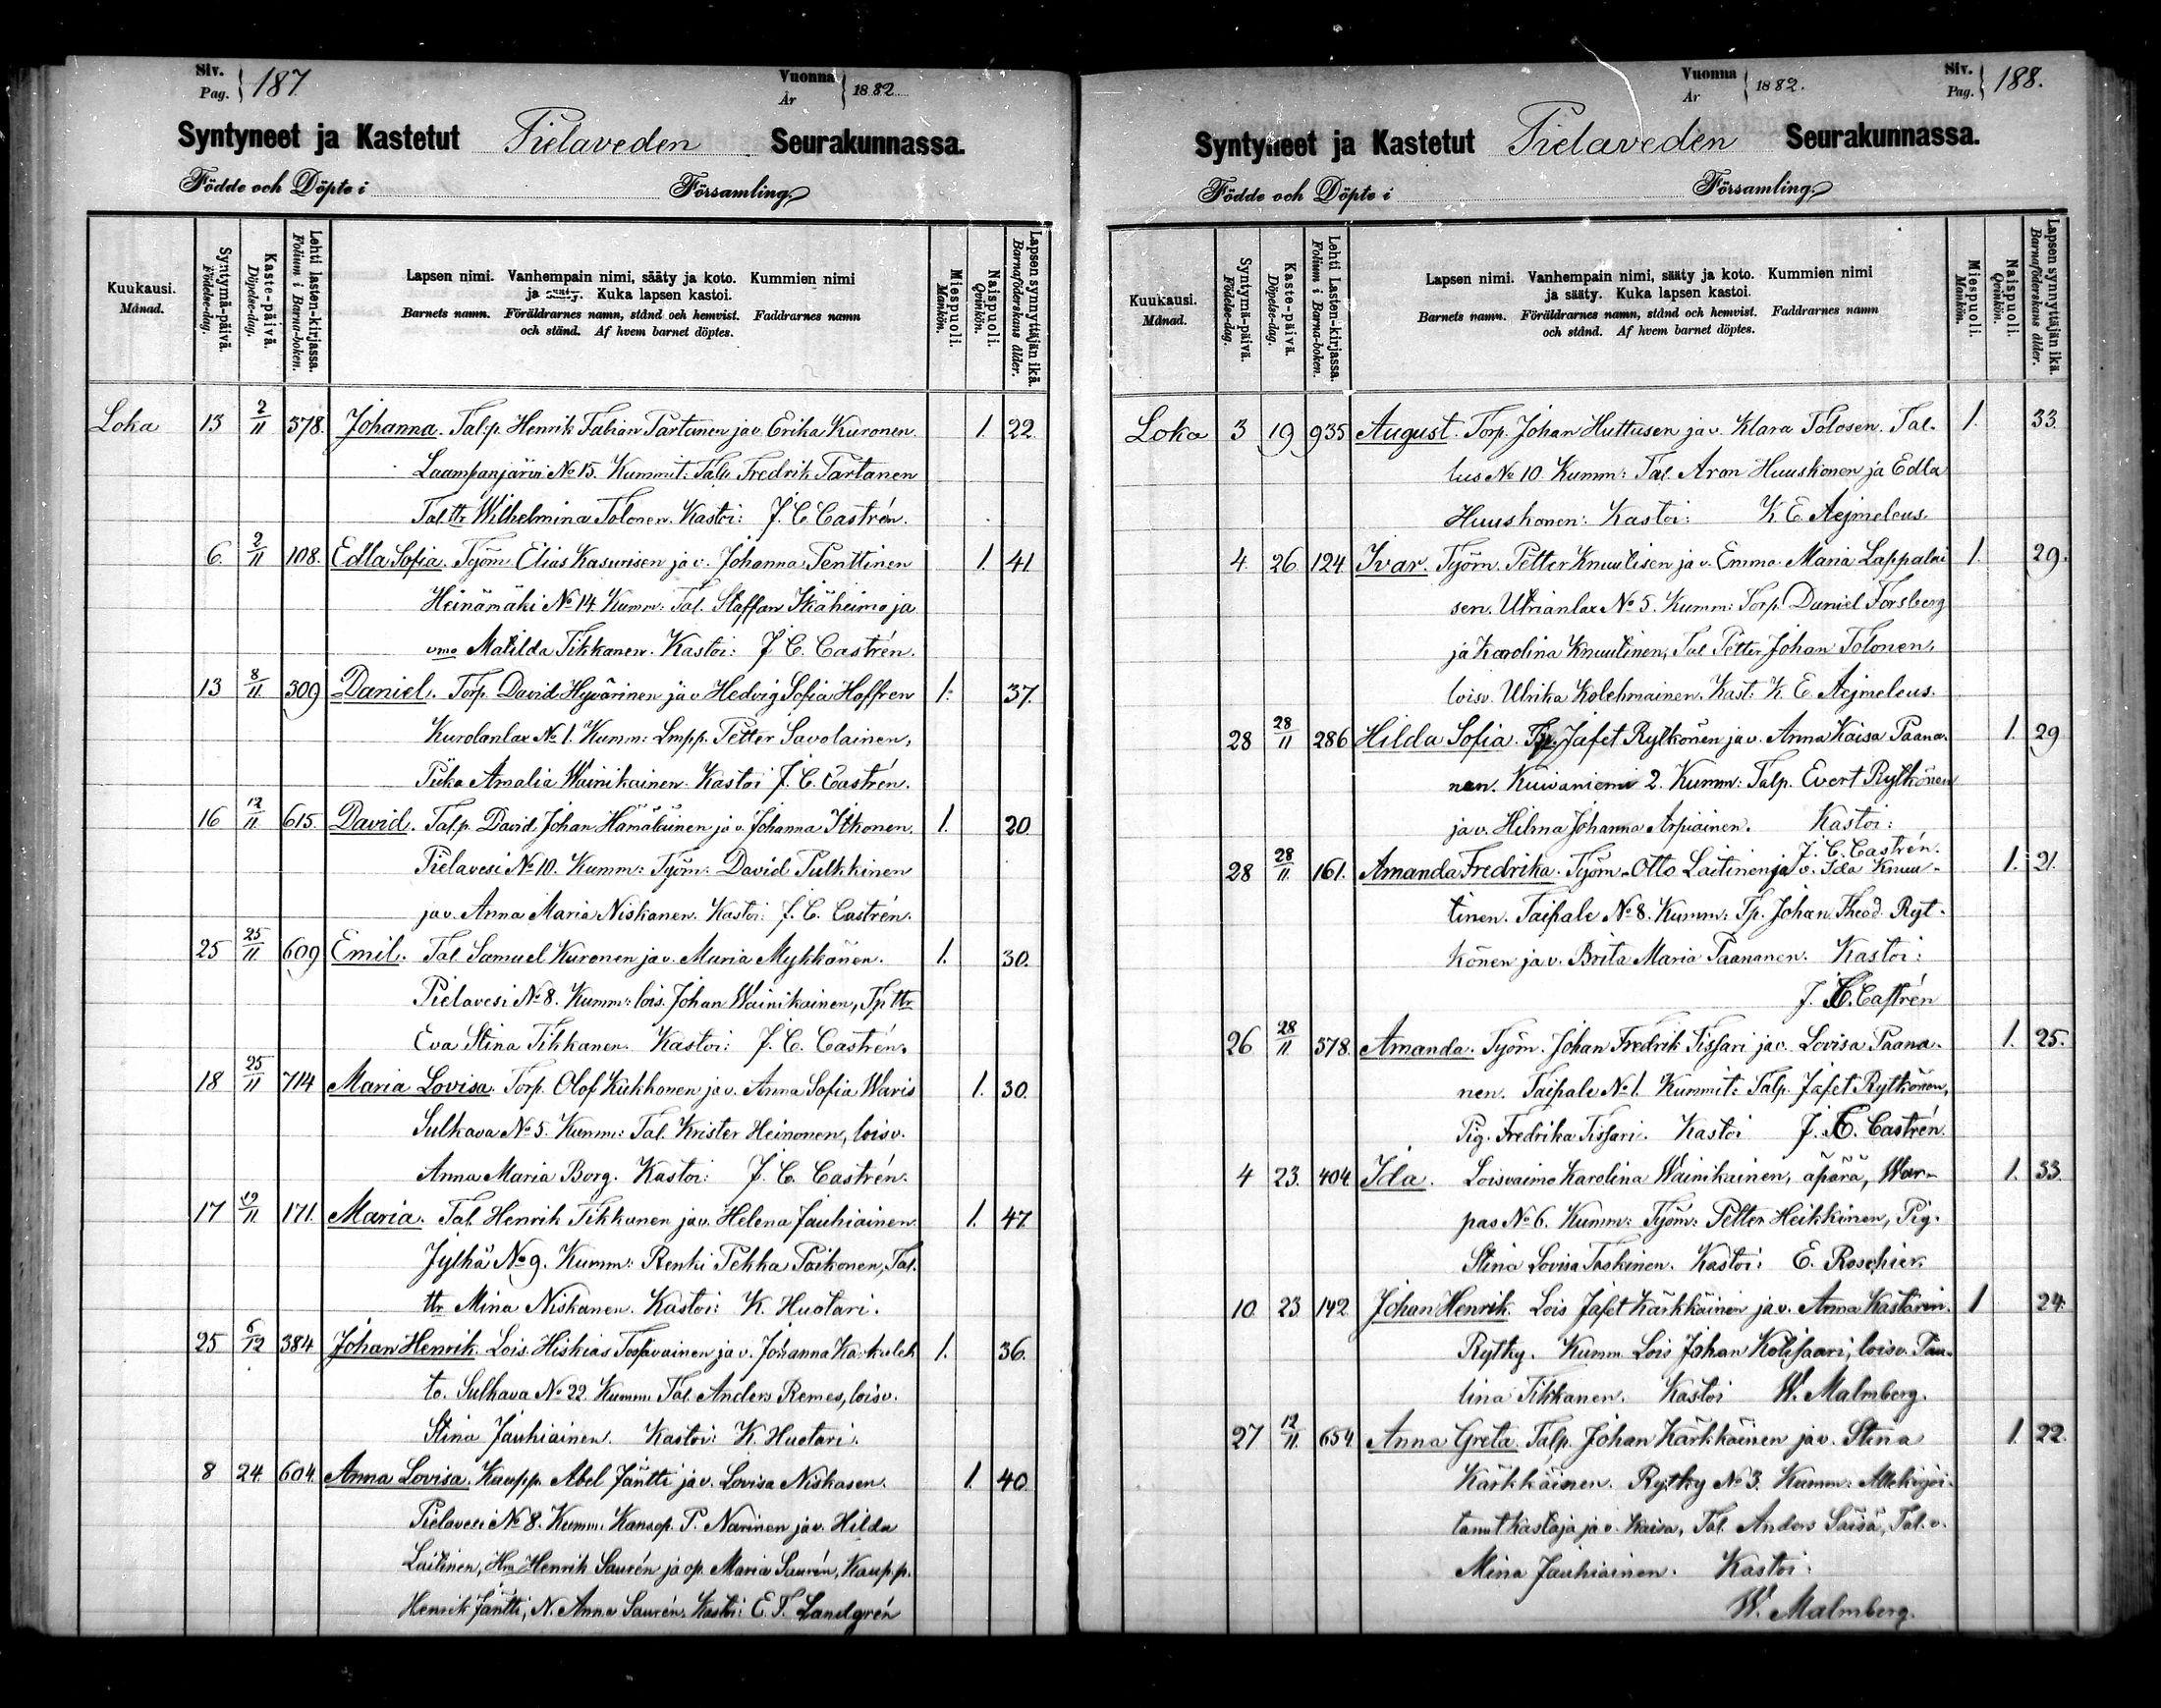 Siv.
Pag. } 187.
Vuonna
År } 1882
Syntyneet ja Kastetut Pielaveden Seurakunnassa.
Födde och Döpte i Församling.
Kuukausi.
Månad.
Syntymä-päivä.
Födelse-dag.
Kaste-päivä.
Döpelse-dag.
Lehti lasten-kirjassa.
Folium i Barna-boken.
Lapsen nimi. Vanhempain nimi, sääty ja koto. Kummien nimi
ja sääty. Kuka lapsen kastoi.
Barnets namn. Föräldrarnes namn, stånd och hemvist. Faddrarnes namn
och stånd. Af hvem barnet döptes.
Miespuoli.
Mankön.
Naispuoli.
Qvinkön.
Lapsen synnyttäjän ikä.
Barnaföderskans ålder.
Loka 13 2/11 578. Johanna. Tal.p. Henrik Fabian Partanen ja v. Erika Kuronen. 1. 22.
Laampanjärvi No 15. Kummit: Talp. Fredrik Partanen
Tal.ttr Wilhelmina Tolonen. Kastoi: J. C. Castrén.
6. 2/11 108. Edla Sofia. Työm. Elias Kasurisen ja v. Johanna Penttinen 1. 41
Heinämäki No 14. Kumm: Tal. Staffan Ikäheimo ja
vmo Matilda Tikkanen. Kastoi: J. C. Castrén.
13 8/11 309 Daniel. Torp. David Hyvärinen ja v Hedvig Sofia Hoffren 1. 37.
Kurolanlax No 1. Kumm: Lmpp. Petter Savolainen,
Piika Amalia Wainikainen. Kastoi J. C. Castrén.
16 12/11 615. David. Talp. David Johan Hämäläinen ja v. Johanna Itkonen. 1. 20
Pielavesi No 10. Kumm: Työm: David Pulkkinen
ja v. Anna Maria Niskanen. Kastoi: J. C. Castrén.
25 25/11 609 Emil. Tal Samuel Kuronen ja v. Maria Mykkänen. 1. 30.
Pielavesi No 8. Kumm: lois. Johan Wainikainen, Tp ttr
Eva Stina Tikkanen. Kastoi: J. C. Castrén.
18 25/11 714 Maria Lovisa. Torp. Olof Kukkonen ja v. Anna Sofia Waris 1. 30.
Sulkava No 5. Kumm: Tal. Krister Heinonen, loisv.
Anna Maria Borg. Kastoi: J. C. Castrén.
17 19/11 171. Maria. Tal. Henrik Tikkanen ja v. Helena Jauhiainen. 1. 47.
Jylhä No 9. Kumm: Renki Pekka Paikonen, Tal.
ttr Mina Niskanen. Kastoi: K. Huotari.
25 6/12 384 Johan Henrik. Lois. Hiskias Tossavainen ja v. Johanna Karkuleh 1. 36.
to. Sulkava No 22. Kumm. Tal. Anders Remes, loisv.
Stina Jauhiainen. Kastoi: K. Huotari.
8 24. 604. Anna Lovisa. Kaupp. Abel Jäntti ja v. Lovisa Niskasen. 1. 40
Pielavesi No 8. Kumm. Kansop. P. Narinen ja v. Hilda
Laitinen, Hra Henrik Saurén ja op. Maria Saurén, Kaup.p.
Henrik Jäntti, N. Anna Saurén. Kastoi: E. T. Landgrén
Vuonna
År } 1882.
Siv.
Pag. } 188.
Syntyneet ja Kastetut Pielaveden Seurakunnassa.
Födde och Döpte i Församling.
Kuukausi.
Månad.
Syntymä-päivä.
Födelse-dag.
Kaste-päivä.
Döpelse-dag.
Lehti Lasten-kirjassa.
Folium i Barna-boken.
Lapsen nimi. Vanhempain nimi, sääty ja koto. Kummien nimi
ja sääty. Kuka lapsen kastoi.
Barnets namn. Föräldrarnes namn, stånd och hemvist. Faddrarnes namn
och stånd. Af hvem barnet döptes.
Miespuoli.
Mankön.
Naispuoli.
Qvinkön.
Lapsen synnyttäjän ikä.
Barnaföderskans ålder.
Loka 3 19 935 August. Torp. Johan Huttusen ja v. Klara Tolosen. Tal- 1. 33.
lus No 10. Kumm: Tal. Aron Huuskonen ja Edla
Huuskonen: Kastoi: K. E. Aejmeleus.
4. 26. 124 Ivar. Työm. Petter Knuutisen ja v. Emma Maria Lappalai 1. 29.
sen. Utrianlax No 5. Kumm: Torp. Daniel Forsberg
ja Karolina Knuutinen, Tal Petter Johan Tolonen,
loisv. Ulrika Kolehmainen. Kast: K. E. Aejmeleus.
28 28/11 286 Hilda Sofia. Tp. Jafet Rytkönen ja v. Anna Kaisa Paana- 1. 29
nen. Kuivaniemi 2. Kumm: Talp. Evert Rytkönen
ja v. Hilma Johanna Arpiainen. Kastoi:
J. C. Castrén.
28 28/11. 161. Amanda Fredrika. Työm. Otto Laitinen ja v. Ida Knuu- 1. 21.
tinen. Taipale No 8. Kumm: Tp. Johan Theod. Ryt-
könen ja v. Brita Maria Paananen. Kastoi:
J. C. Castrén
26 28/11. 578. Amanda. Työm. Johan Fredrik Tissari ja v. Lovisa Paana- 1. 25.
nen. Taipale No 1. Kummit: Talp. Jafet Rytkönen,
Pig. Fredrika Tissari. Kastoi J. C. Castrén.
4 23. 404. Ida. Loisvaimo Karolina Wainikainen, äpärä, War- 1. 33.
pas No 6. Kumm: Työm: Petter Heikkinen, Pig.
Stina Lovisa Toskinen. Kastoi: E. Roschier.
10 23 142. Johan Henrik. Lois Jafet Kärkkäinen ja v. Anna Kastarin. 1 24.
Rytky. Kumm. Lois Johan Kolisaari, loisv. Pau-
lina Tikkanen. Kastoi W. Malmberg.
27 12/11. 654 Anna Greta. Talp. Johan Kärkkäinen ja v. Stina 1. 22.
Kärkkäinen. Rytky No 3. Kumm: Allekirjoi-
tanut Kastaja ja v. Kaisa, Tal. Anders Säisä, Tal. v.
Mina Jauhiainen. Kastoi.
W. Malmberg.